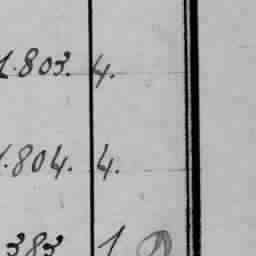 1.803. 4.
1.804. 4.
383 1